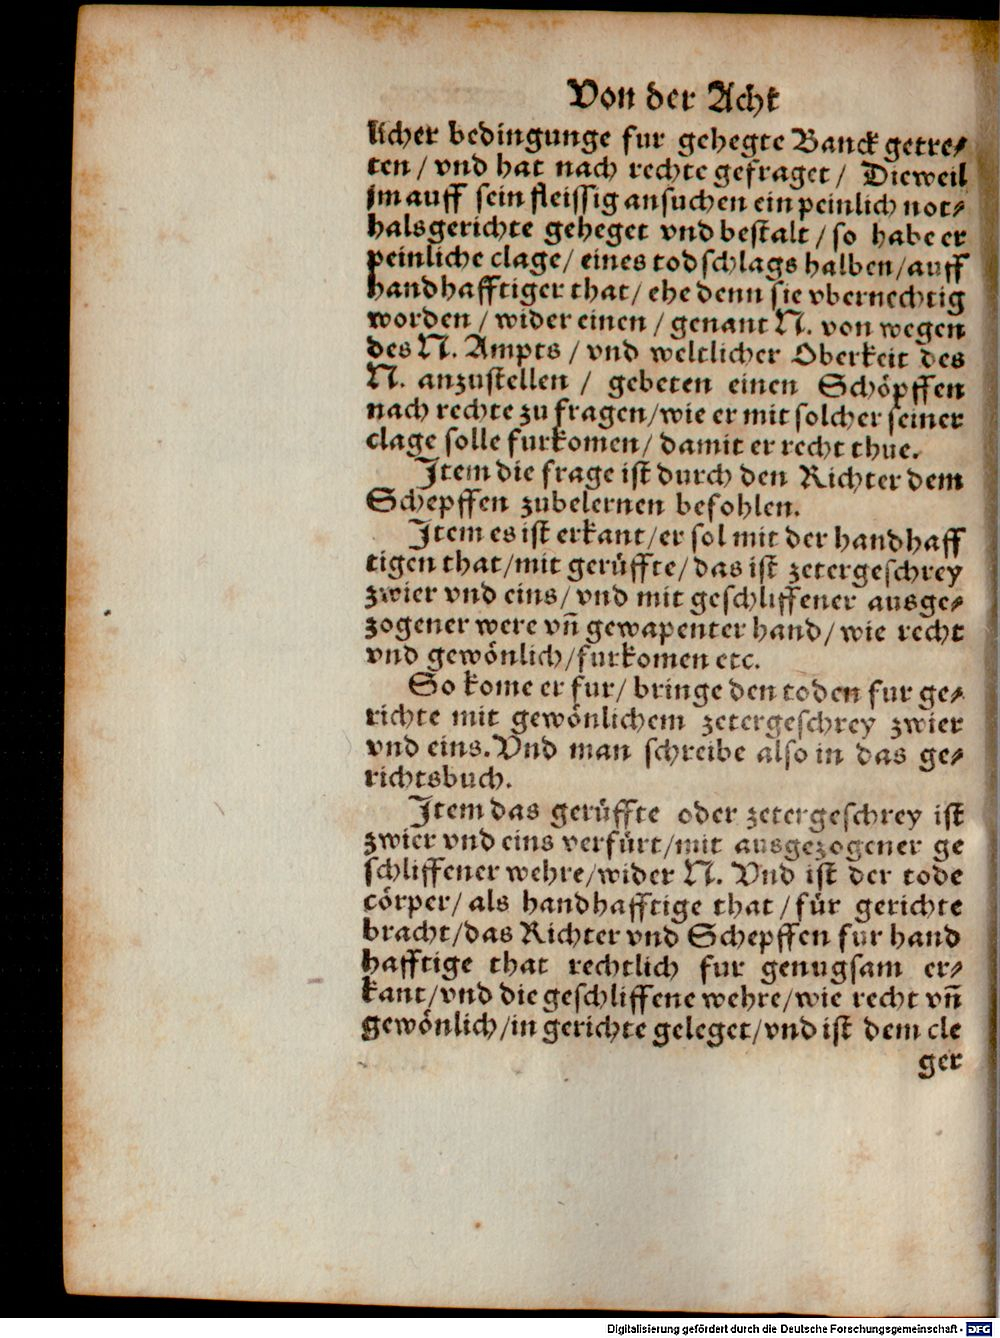 Von der Acht
licher bedingunge fur gehegte Banck getre⸗
ten / vnd hat nach rechte gefraget / Dieweil
jm auff sein fleissig ansuchen ein peinlich not⸗
halsgerichte geheget vnd bestalt / so habe er
peinliche clage / eines todschlags halben / auff
handhafftiger that / ehe denn sie vbernechtig
worden / wider einen / genant N. von wegen
des N. Ampts / vnd weltlicher Oberkeit des
N. anzustellen / gebeten einen Schöpffen
nach rechte zu fragen / wie er mit solcher seiner
clage solle furkomen / damit er recht thue.
Item die frage ist durch den Richter dem
Schepffen zubelernen befohlen.
Item es ist erkant / er sol mit der handhaff
tigen that / mit gerüffte / das ist zetergeschrey
zwier vnd eins / vnd mit geschliffener ausge⸗
zogener were vñ gewapenter hand / wie recht
vnd gewönlich / furkomen etc.
So kome er fur / bringe den toden fur ge⸗
richte mit gewönlichem zetergeschrey zwier
vnd eins. Vnd man schreibe also in das ge⸗
richtsbuch.
Item das gerüffte oder zetergeschrey ist
zwier vnd eins verfürt / mit ausgezogener ge
schliffener wehre / wider N. Vnd ist der tode
cörper / als handhafftige that / für gerichte
bracht / das Richter vnd Schepffen fur hand
hafftige that rechtlich fur genugsam er⸗
kant / vnd die geschliffene wehre / wie recht vñ
gewönlich / in gerichte geleget / vnd ist dem cle
ger
Digitalisierung gefördert durch die Deutsche Forschungsgemeinschaft - DFG